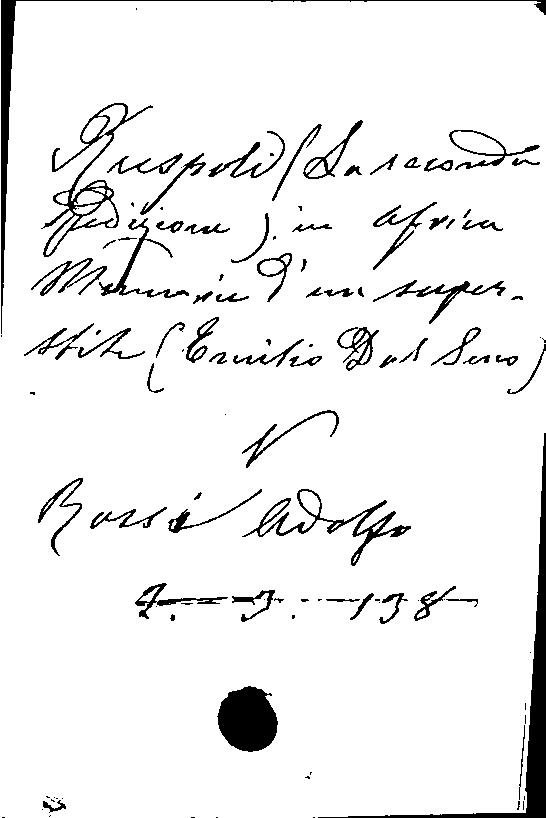 Ruspoli (La seconda
spedizione) in Africa
Memorie d'un super-
stite (Emilio Dal Seno)
V
Rossi Adolfo
2. 3. 138